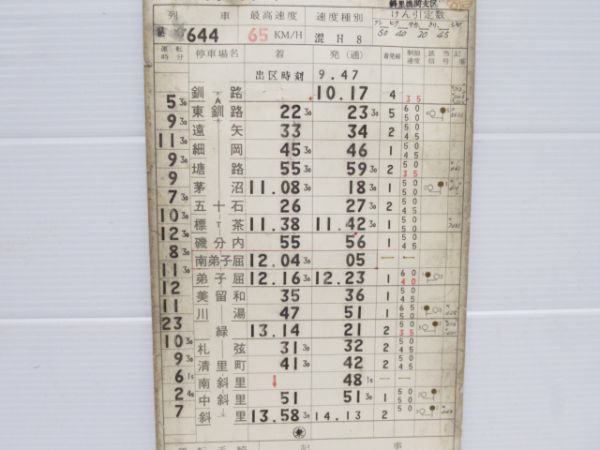 列 車 最高速度 速度種別 けん引定数
644 65 KM/H 混 H 8 50 40 20 45
運転時分 停車場名 着 発(通) 着発線 制限速度
出区時刻 9.47
釧 路 10.17 4 35
5 30
東釧路 22 30 23 30 5 60 50
9
遠 矢 33 34 2 50 45
11 30
細 岡 45 30 46 1 50 45
9
塘 路 55 30 59 30 2 50 35
9
茅 沼 11.08 30 18 30 1 50 50
7 30
五十石 26 27 30 2 50 45
10 30
標 茶 11.38 11.42 30 1 50 45
12 30
磯分内 55 56 1 50 45
8 30
南弟子屈 12.04 30 05
11 30
弟子屈 12.16 30 12.23 1 60 40
12
美留和 35 36 1 50 45
11
川 湯 47 51 1 60 50
23
緑 13.14 21 2 50 35
10 30
札 弦 31 30 32 2 50 45
9 30
清里町 41 30 42 2 50 45
6 15
南斜里 ↓ 48 15
2 45
中斜里 51 51 30 1 50 50
7
斜 里 13.58 30 14.13 2 50
記 事